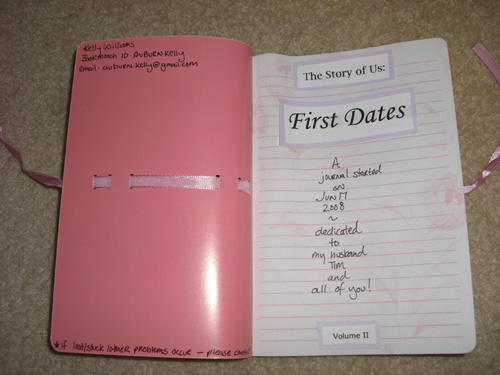 Kelly Williams
Swapbook ID: AUBURNKELLY
email: auburnkelly@gmail.com
*if lost/stuck/other problems occur — please contact
The Story of Us:
First Dates
A
journal started
on
Jun 17
2008
~
dedicated
to
my husband
Tim
and
all of you!
Volume II